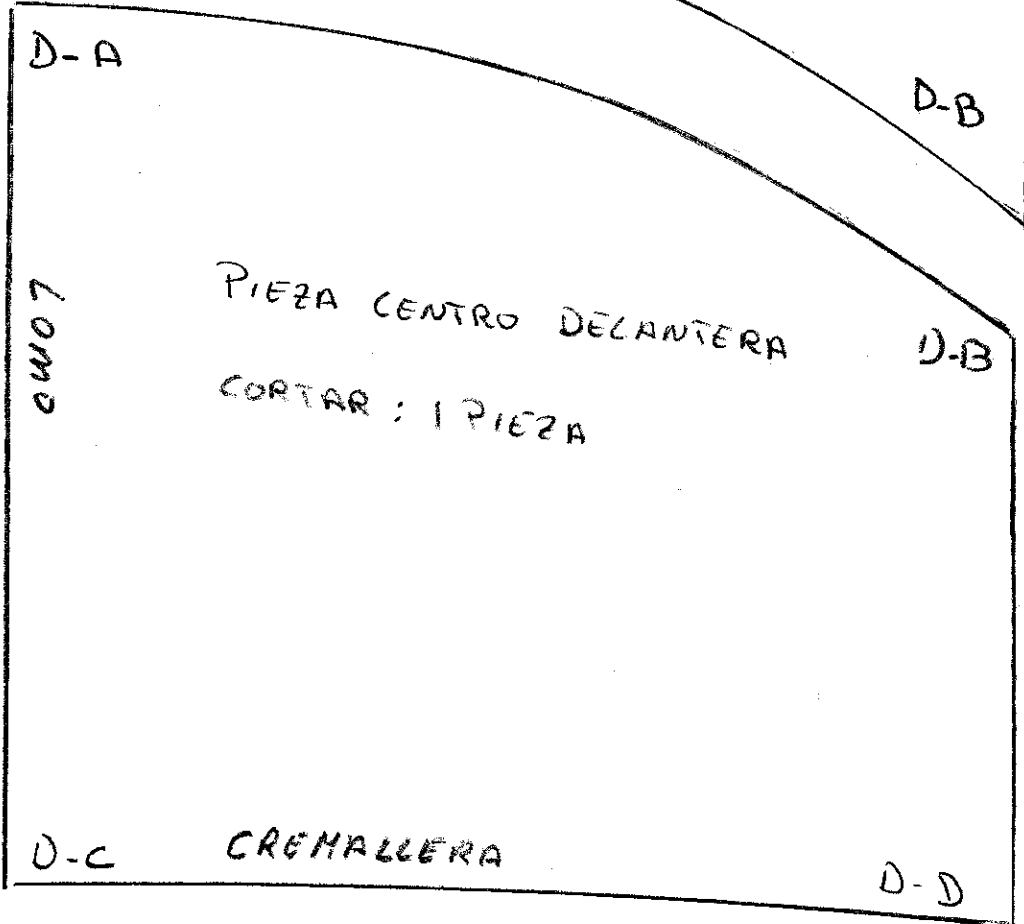 D-A
D-B
LOMO
PIEZA CENTRO DELANTERA
D-B
CORTAR : 1 PIEZA
D-C
CREMALLERA
D-D